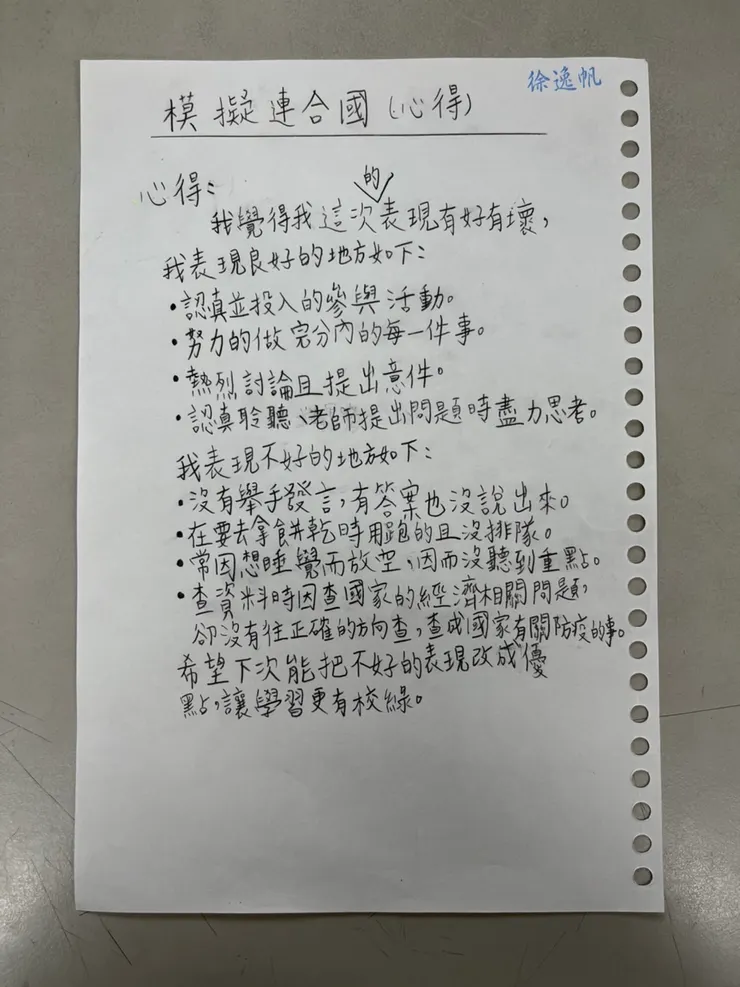 徐逸帆
模擬連合國(心得)
心得:
的
我覺得我這次表現有好有壞,
我表現良好的地方如下:
・認真並投入的參與活動。
・努力的做完分內的每一件事。
・熱烈討論且提出意件。
・認真聆聽、老師提出問題時盡力思考。
我表現不好的地方如下:
・沒有舉手發言,有答案也沒說出來。
・在要去拿餅乾時用跑的且沒排隊。
・常因想睡覺而放空,因而沒聽到重點。
・查資料時因查國家的經濟相關問題,
卻沒有往正確的方向查,查成國家有關防疫的事。
希望下次能把不好的表現改成優
點,讓學習更有校綠。